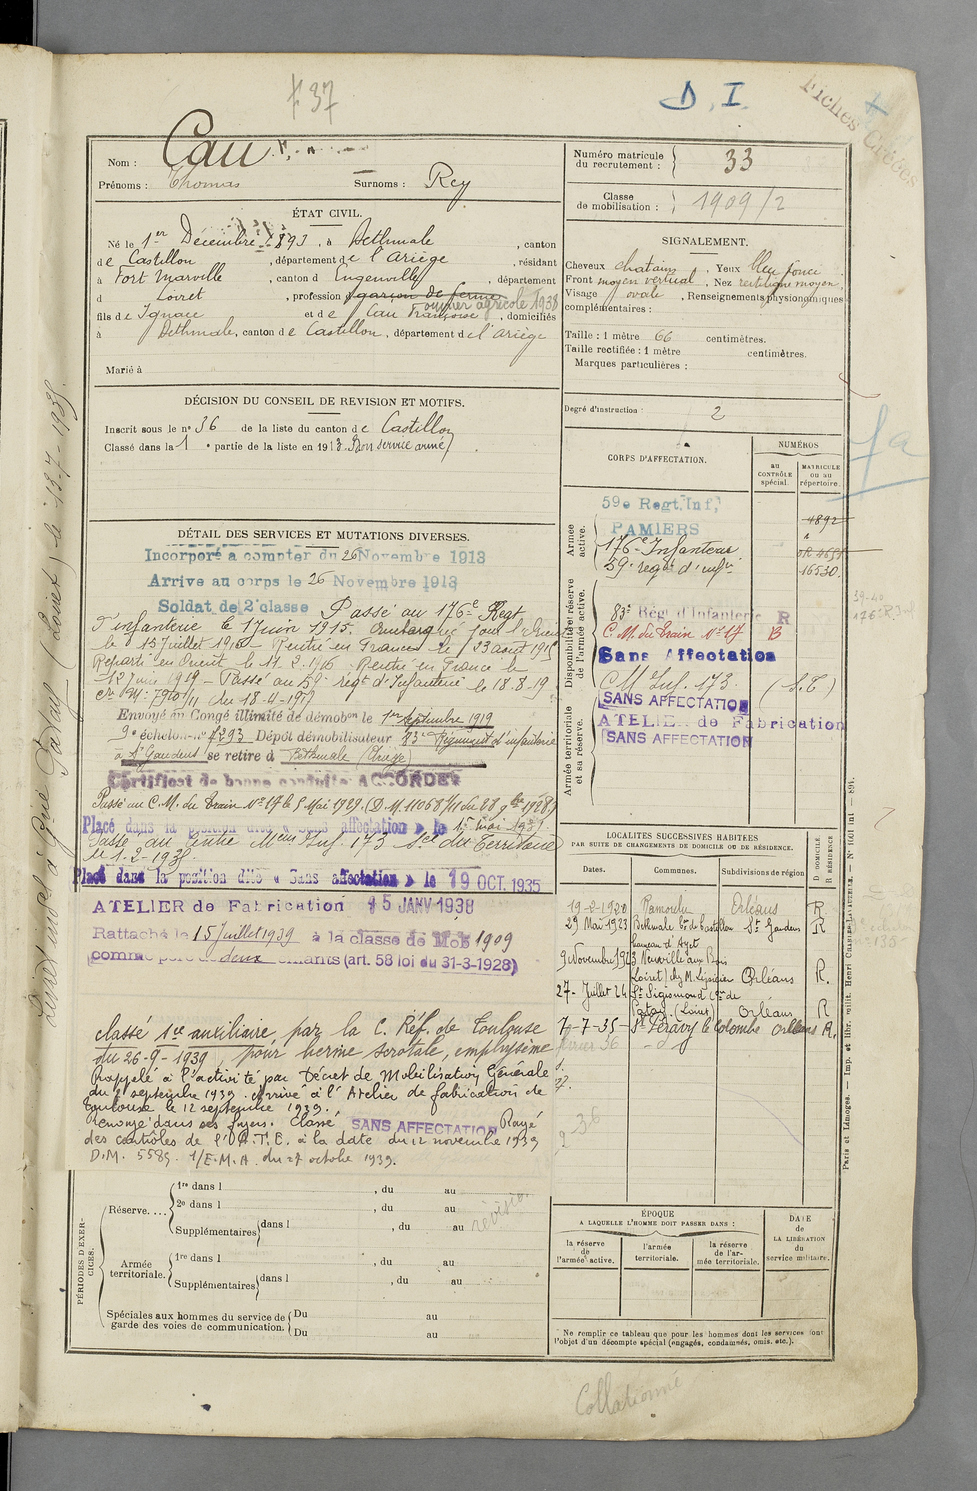 37
D. I.
Fiches Créées
Nom : Cau
Prénoms : Thomas Surnoms : Rey
Numéro matricule du recrutement : 33
Classe de mobilisation : 1909/2
ÉTAT CIVIL.
Né le 1er Décembre 1893, à Bethmale, canton
de Castillon, département de l'Ariège, résidant
à Fort Marville, canton d Engenville, département
d Loiret, profession garçon de ferme
Ouvrier agricole 1938
fils de Ignace et de Cau Françoise, domiciliés
à Bethmale, canton de Castillon, département de l'Ariège
Marié à
SIGNALEMENT.
Cheveux chatains. Yeux bleu foncé
Front moyen vertical. Nez rectiligne moyen,
Visage ovale, Renseignements physionomiques
complémentaires :
Taille : 1 mètre 66 centimètres.
Taille rectifiée : 1 mètre centimètres.
Marques particulières :
Degré d'instruction : 2
DÉCISION DU CONSEIL DE REVISION ET MOTIFS.
Inscrit sous le no 36 de la liste du canton de Castillon
Classé dans la 1 e partie de la liste en 1913. Bon service armé
CORPS D'AFFECTATION.
NUMÉROS
au CONTRÔLE spécial.
MATRICULE ou au répertoire.
Armée active.
59e Regt. Inf.
PAMIERS
176e Infanterie
59e regt d'infie
4892
16530.
Disponibilité et réserve de l'armée active.
83e Régt d'Infanterie R
C. M. du Train No 17 B
Sans Affectation
C M Inf. 173 (S.T)
SANS AFFECTATION
Armée territoriale et sa réserve.
ATELIER de Fabrication
SANS AFFECTATION
39-40
176e R. Inf
DÉTAIL DES SERVICES ET MUTATIONS DIVERSES.
Incorporé à compter du 26 Novembre 1913
Arrive au corps le 26 Novembre 1913
Soldat de 2e classe Passé au 176e Regt
d'infanterie le 1 Juin 1915. Embarqué pour l'Orient
le 13 Juillet 1915 Rentré en France le 23 aout 1915
Reparti en Orient le 17. 2. 1916. Rentré en France le
12 Juin 1919 - Passé au 59e regt d'Infanterie le 18-8-19
du 18-4-1919
Envoyé en Congé illimité de démobon le 1er Septembre 1919
9e échelon no 4293 Dépôt démobilisateur 83e Régiment d'infanterie
à St Gaudens se retire à Bethmale (Ariège)
Certificat de bonne conduite ACCORDÉ
Passé au C. M. du Train No 17 le 5 Mai 1929. (D. M. 11068/11 du 28 9bre 1928)
Placé dans la position dite « Sans affectation » le 15 mai 1929
Passé au Centre Mens Inf. 173 Sel du Territoire
le 1-2-1935.
Placé dans la position dite « Sans affectation » le 19 OCT. 1935
ATELIER de Fabrication 15 JANV 1938
Rattaché le 15 Juillet 1939 à la classe de Mob 1909
comme père de deux enfants (art. 58 loi du 31-3-1928)
classé 1er auxiliaire, par la C. Réf. de Toulouse
du 26-9-1939, pour hernie scrotale, emphysème
Rappelé à l'activité par Décret de Mobilisation Générale
du 2 septembre 1939. Arrivé à l'Atelier de fabrication de
Toulouse le 12 septembre 1939.
Renvoyé dans ses foyers. Classé SANS AFFECTATION Rayé
des contrôles de l'A. T. E. à la date du 12 novembre 1939
D.M. 5585. 1/E.M.A. du 27 octobre 1939.
LOCALITÉS SUCCESSIVES HABITÉES
PAR SUITE DE CHANGEMENTS DE DOMICILE OU DE RÉSIDENCE.
Dates. Communes. Subdivisions de région D DOMICILE R RÉSIDENCE
19-2-1920 Ramoulu Orléans R
29 Mai 1923 Bethmale Con de Castillon St Gaudens R
hameau d'Ayet
9 Novembre 1923 Neuville aux Bois
(Loiret) chez M. Orléans R.
27 - Juillet 24 St Sigismond con de
Patay (Loiret) Orléans R
7-7-35 - St Péravy la Colombe Orléans R.
36
2-36
PÉRIODES D'EXERCICES.
Réserve. ....
1re dans l , du au
2e dans l , du au
Supplémentaires dans l , du au
révision
Armée territoriale.
1re dans l , du au
Supplémentaires dans l , du au
Spéciales aux hommes du service de garde des voies de communication.
Du au
Du au
ÉPOQUE
A LAQUELLE L'HOMME DOIT PASSER DANS :
la réserve de l'armée active.
l'armée territoriale.
la réserve de l'armée territoriale.
DATE de LA LIBÉRATION du service militaire.
Ne remplir ce tableau que pour les hommes dont les services font
l'objet d'un décompte spécial (engagés, condamnés, omis, etc.).
Collationné
Paris et Limoges. — Imp. et libr. milit. Henri CHARLES-LAVAUZELLE.